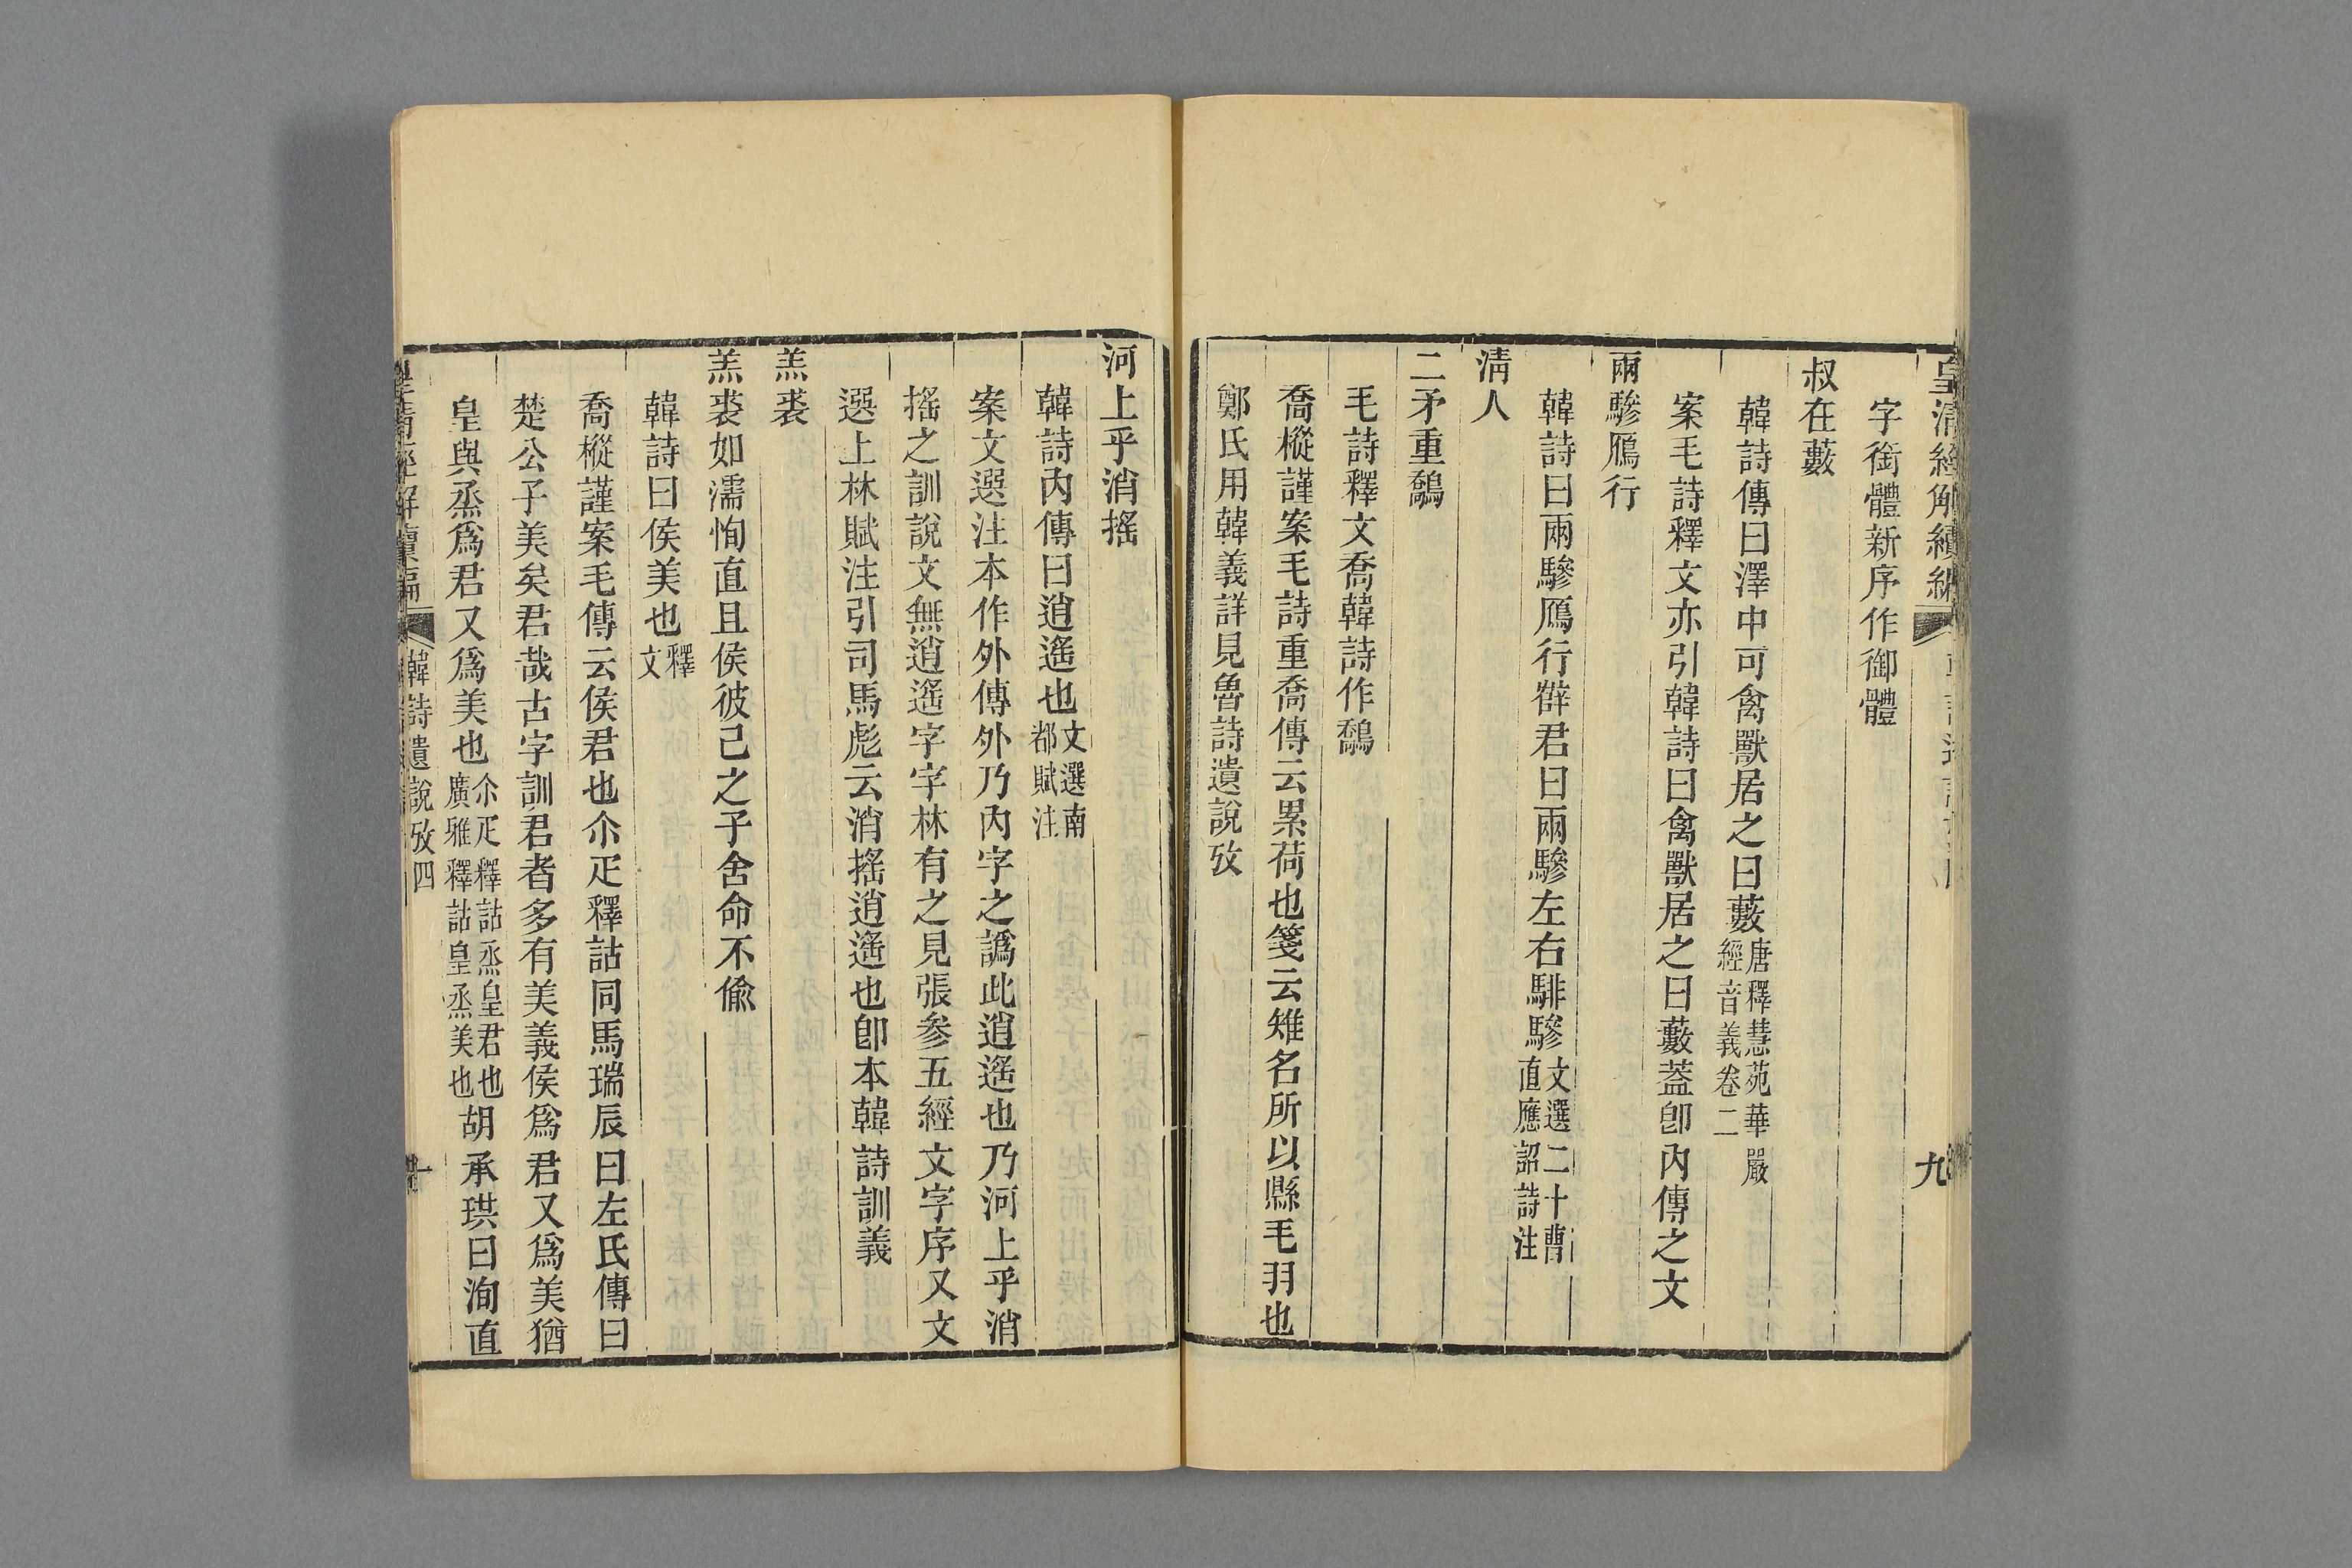 皇清經解續編
九
字銜體新序作御體
叔在藪
韓詩傳曰澤中可禽獸居之曰藪唐釋慧苑華嚴經音義卷二
案毛詩釋文亦引韓詩曰禽獸居之曰藪蓋卽內傳之文
兩驂鴈行
韓詩曰兩驂鴈行薛君曰兩驂左右騑驂文選二十曹直應詔詩注
淸人
二矛重鷮
毛詩釋文喬韓詩作鷮
喬樅謹案毛詩重喬傳云累荷也箋云雉名所以縣毛羽也
鄭氏用韓義詳見魯詩遺說攷
河上乎消搖
韓詩內傳曰逍遙也文選南都賦注
案文選注本作外傳外乃內字之譌此逍遙也乃河上乎消
搖之訓說文無逍遙字字林有之見張參五經文字序又文
選上林賦注引司馬彪云消搖逍遙也卽本韓詩訓義
羔裘
羔裘如濡恂直且侯彼己之子舍命不偸
韓詩曰侯美也釋文
喬樅謹案毛傳云侯君也尒疋釋詁同馬瑞辰曰左氏傳曰
楚公子美矣君哉古字訓君者多有美義侯爲君又爲美猶
皇與烝爲君又爲美也尒疋釋詁烝皇君也廣雅釋詁皇烝美也胡承珙曰洵直
皇淸經解續編
韓詩遺說攷四
十